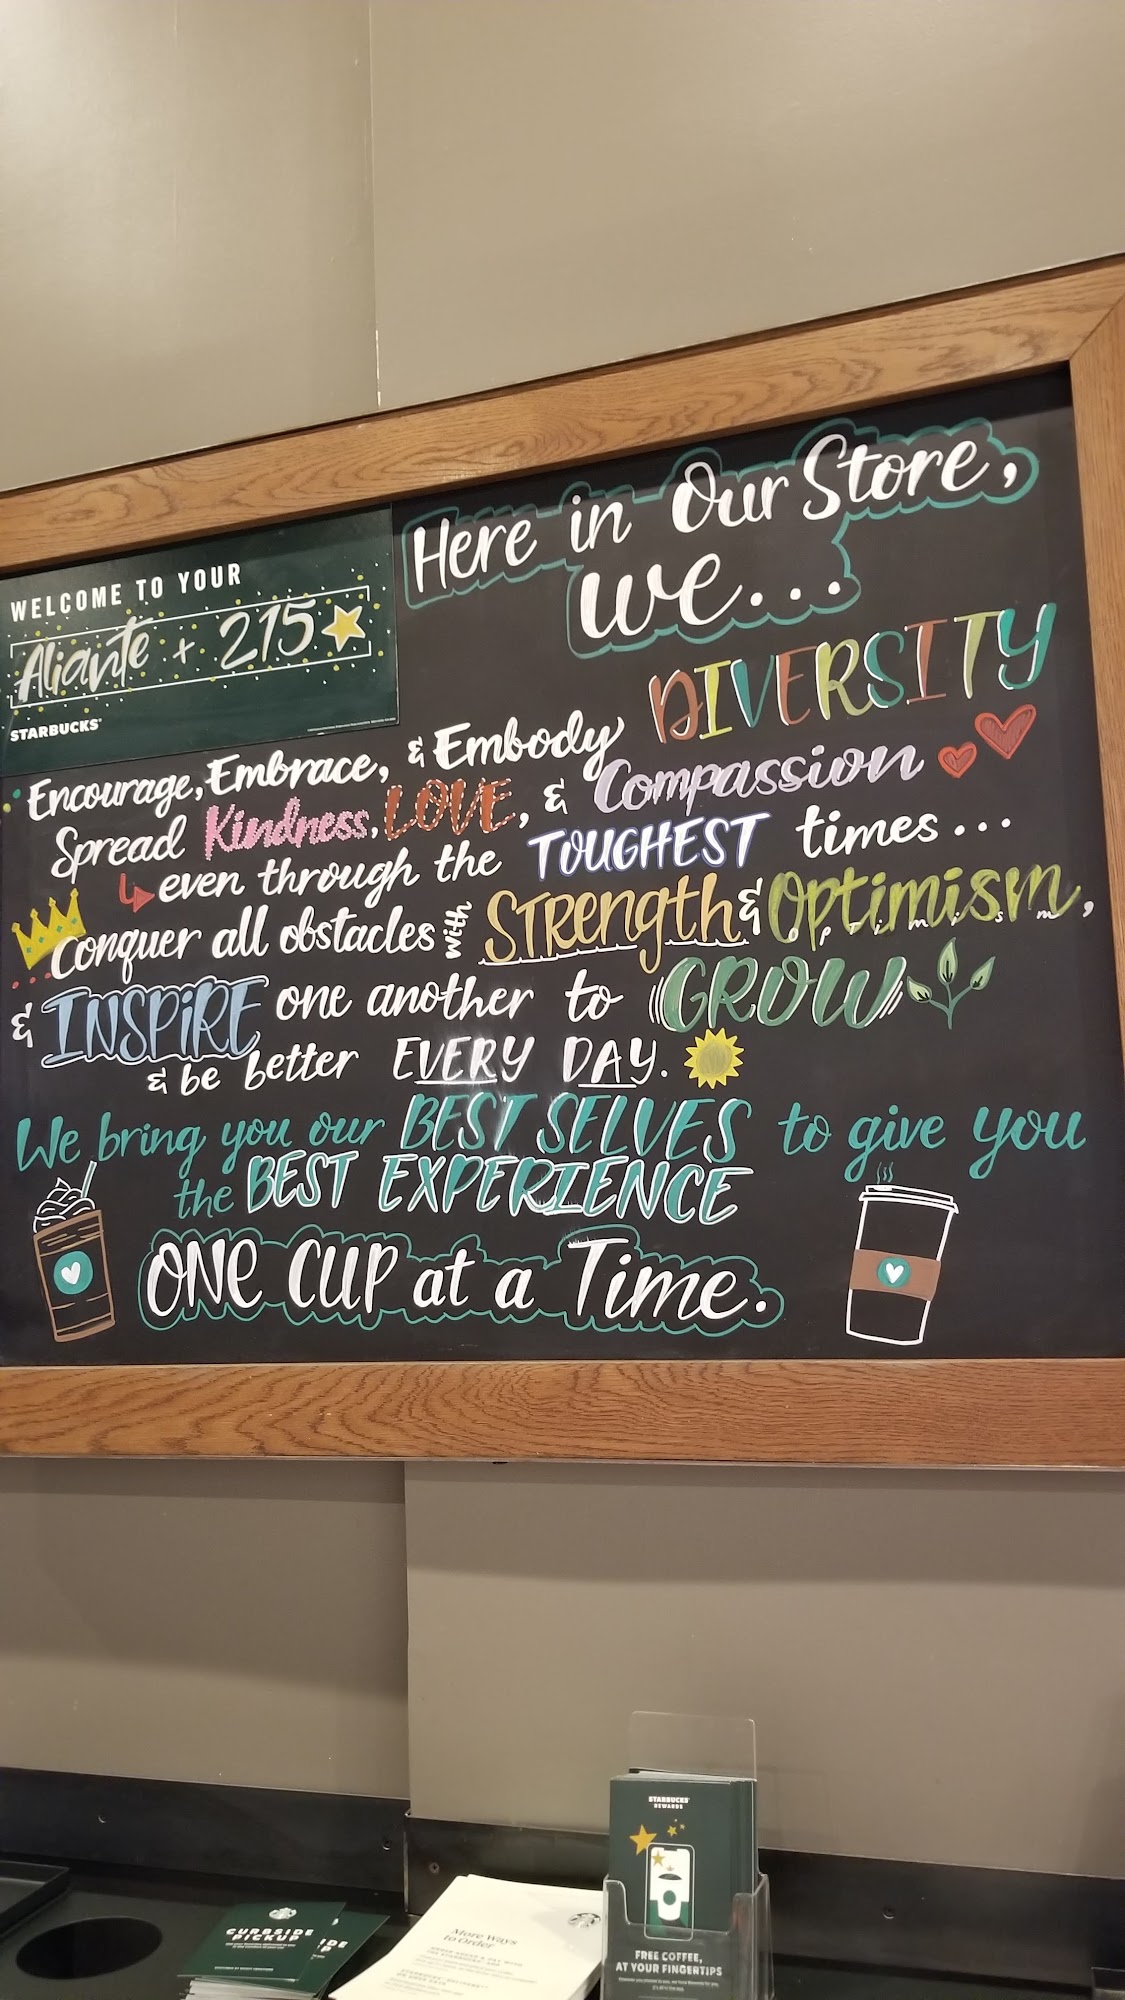 WELCOME TO YOUR
Aliante + 215
STARBUCKS®
Here in Our Store,
we...
Encourage, Embrace, & Embody DIVERSITY
Spread Kindness, LOVE, & Compassion
even through the TOUGHEST times...
Conquer all obstacles with STRength & Optimism,
OPTimism
& INSPiRE one another to GROW
& be better EVERY DAY.
We bring you our BEST SELVES to give you
the BEST EXPERIENCE
ONE CUP at a Time.
CURBSIDE
PICKUP
More Ways
to Order
STARBUCKS®
REWARDS
FREE COFFEE,
AT YOUR FINGERTIPS